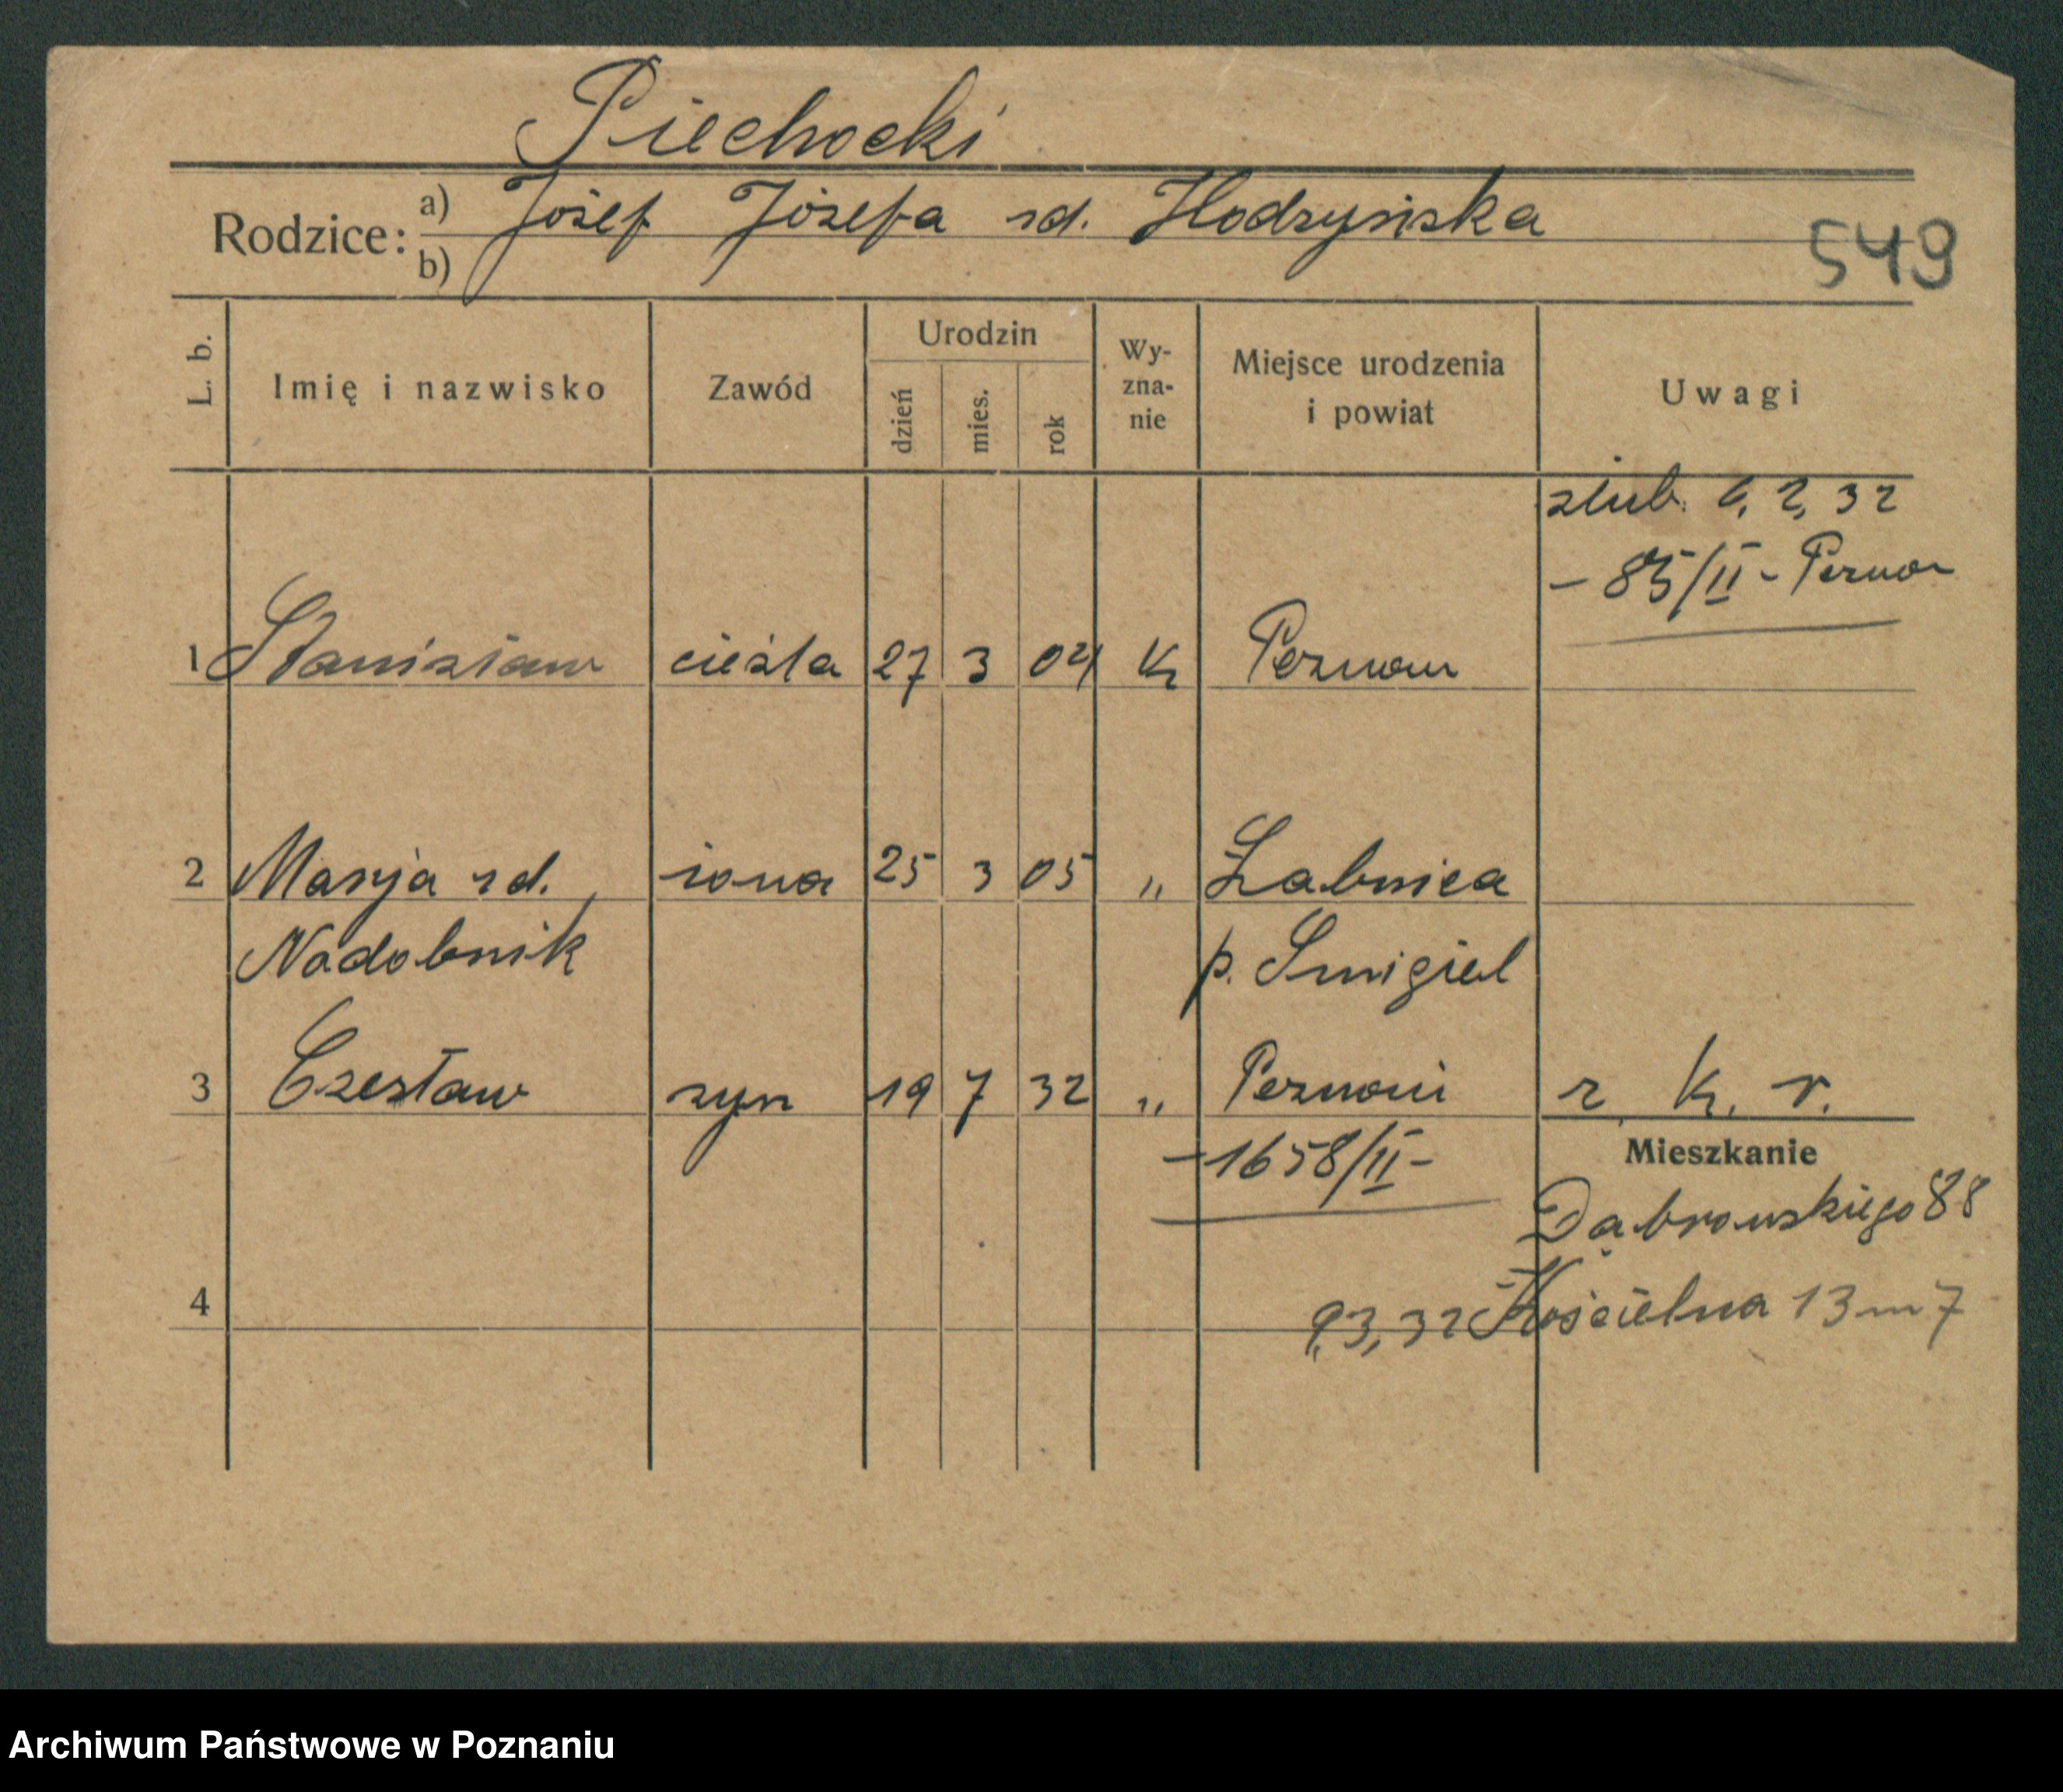 Piechocki
Rodzice: a) Józef Józefa zd. Hodzyńska
b)
549
L. b.
Imię i nazwisko
Zawód
Urodzin
dzień
mies.
rok
Wy-
zna-
nie
Miejsce urodzenia
i powiat
Uwagi
ślub. 6, 2, 32
– 85/II – Poznan
1 Stanisław cieśla 27 3 04 K Poznan
2 Marja zd. żona 25 3 05 „ Żabnica
Nadobnik p. Smigiel
3 Czesław syn 19 7 32 „ Poznań r. k. v.
– 1658/II –
Mieszkanie
Dąbrowskiego 88
4 9,3,32 Kościelna 13 m 7
Archiwum Państwowe w Poznaniu